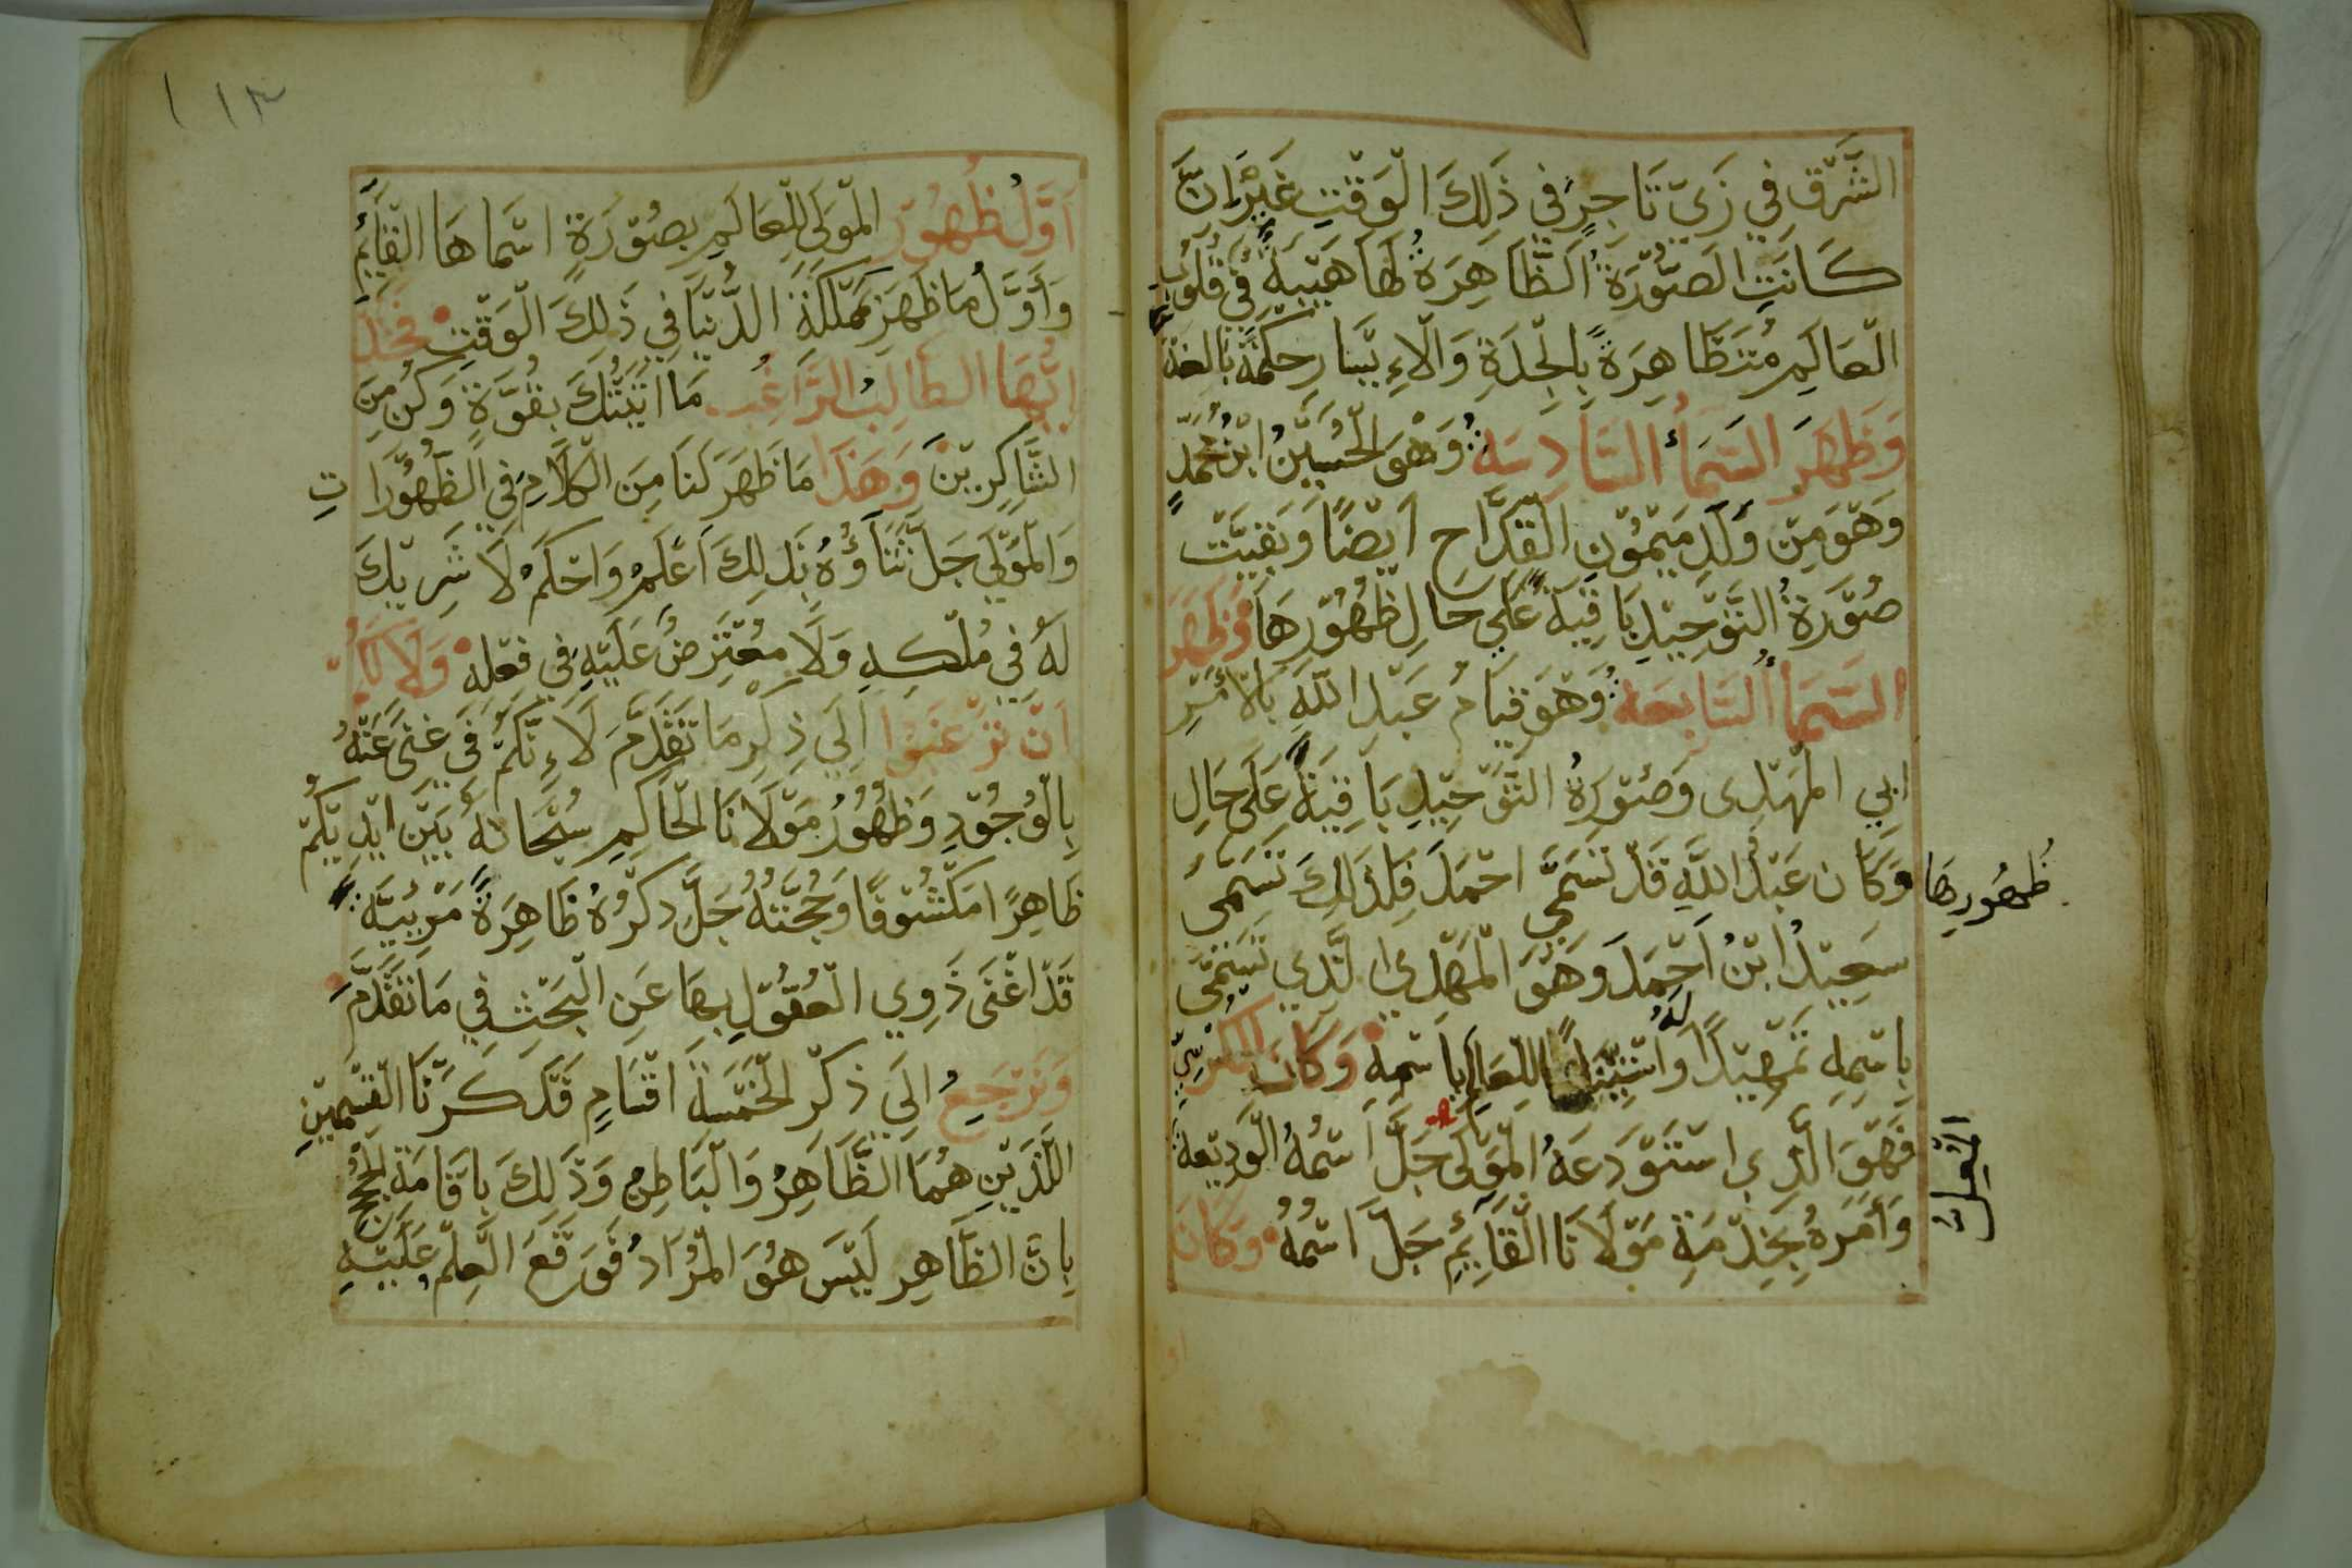 الشَّرْقِ فِي زَيّ تَاجِرٍ فِي ذَلِكَ الْوَقْتِ غَيْرَ انَّ
كَانَتِ الصُّوْرَةُ الظَّاهِرَةُ لَهَا هَيْبَةٌ فِي قُلُوْبِ
الْعَالَمِ مُتَظَاهِرَةً بِالْجِدَةِ وَالْاِيْسَارِ حِكْمَةً بَالِغَة
وَظَهَرَ السَّمَأُ السَّادِسَةُ وَهْوَ الْحُسَيْنُ ابْنُ مُحَمَّدٍ
وَهْوَ مِنْ وَلَدِ مَيْمُوْنِ الْقَدَّاحِ اَيْضًا وَبَقِيَتْ
صُوْرَةُ التَّوْحِيْدِ بَاقِيَةً عَلَي حَالِ ظُهُوْرِهَا وَظَهَرَ
السَّمَأُ السَّابِعَةُ وَهْوَ قِيَامُ عَبْدِ اللَّهِ بِالْاَمْرِ
ابِي الْمَهْدِى وَصُوْرَةُ التَّوْحِيْدِ بَاقِيَةً عَلَى حَالِ
ظُهُورِهَا وَكَانَ عَبْدُ اللَّهِ قَدْ تَسَمَّى احْمَدَ فَلِذَلِكَ تَسَمَّى
سَعِيْدُ ابْنُ اَحْمَدَ وَهْوَ الْمَهْدِى الَّذِي تَسَمَّى
بِاسْمِهِ تَمْهِيْدًا لَهُ وَاسْتِتَارًا لِلعَالَمِ بِاسْمِهِ وَكَانَ كَالكُرْسِيّ
فَهْوَ الَّذِي اسْتَوْدَعَهُ الْمَوْلَى جَلَّ اسْمُهُ الْوَدِيْعَةَ
المُعِلّ
وَأَمَرَهُ بِخِدْمَةِ مَوْلَانَا الْقَايِمُ جَلَّ اسْمُهُ وَكَانَ
١١٣
اَوَّلُ ظُهُوْرِ الْمَوْلَى لِلْعَالَمِ بِصُوْرَةٍ اسْمَاهَا الْقَايِمَ
وَأَوَّلُ مَا ظَهَرَ بِمَمْلَكَةِ الدُّنْيَا فِي ذَلِكَ الْوَقْتِ فَخُذْ
ايُّهَا الطَّالِبُ الرَّاغِبُ مَا اتَيْتُكَ بِقُوَّةٍ وَكُن مِنَ
الشَّاكِرِيْنَ وَهَذَا مَا ظَهَرَ لَنَا مِنَ الْكَلَامِ فِي الظُّهُوْرَاتِ
وَالْمَوْلَي جَلَّ ثَنَاؤُهُ بِذَلِكَ اَعْلَمُ وَاحْكَمُ لَا شَرِيْكَ
لَهُ فِي مُلْكِهِ وَلَا مُعْتَرِضُ عَلَيْهِ فِي فِعْلِهِ وَلَا لَكُم
اَنْ تَرْغَبَوْا اِلَي ذِكْرِ مَا تَقَدَّمَ لَاِنَّكُمْ فِي غِنَى عَنْهُ
بِالْوُجُوْدِ وَظُهُوْرُ مَوْلَانَا الْحَاكِمِ سُبْحَانَهُ بَيْنَ ايْدِيْكُمْ
ظَاهِرًا مَكْشُوْفًا وَحُجَّتُهُ جَلَّ ذِكْرُهُ ظَاهِرَةً مَرْئِيَّةً
قَدْ اغْنَى ذَوِي الْعُقُوْلِ بِهَا عَنِ الْبَحْثِ فِي مَا تَقَدَّمَ
وَنَرْجِعُ الَي ذِكْرِ الْخَمْسَةَ اقْسَامٍ قَدْ كَسَرْنَا الْقِسْمَيْنِ
اللَّذَيْنِ هُمَا الظَّاهِرُ وَالْبَاطِنُ وَذَلِكَ بِاقَامَةِ الْحُجَجِ
بِانَّ الظَّاهِر لَيْسَ هُوَ الْمُرَادُ فَوَقَعَ الْعِلْمُ عَلَيْهِ